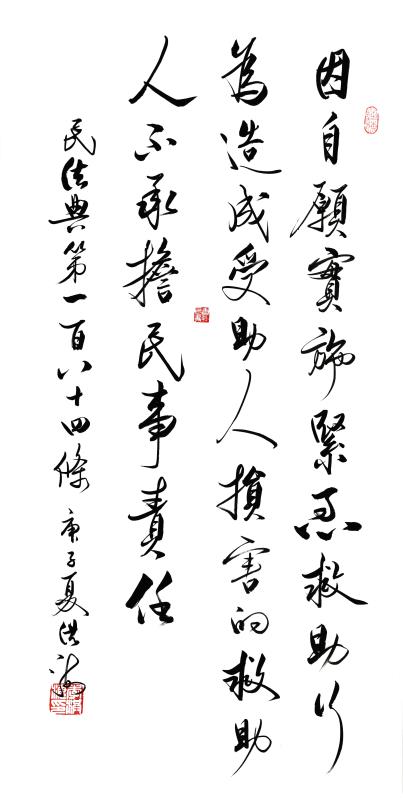 因自願實施緊急救助行
為造成受助人損害的救助
人不承擔民事責任
民法典第一百八十四條 庚子夏洪